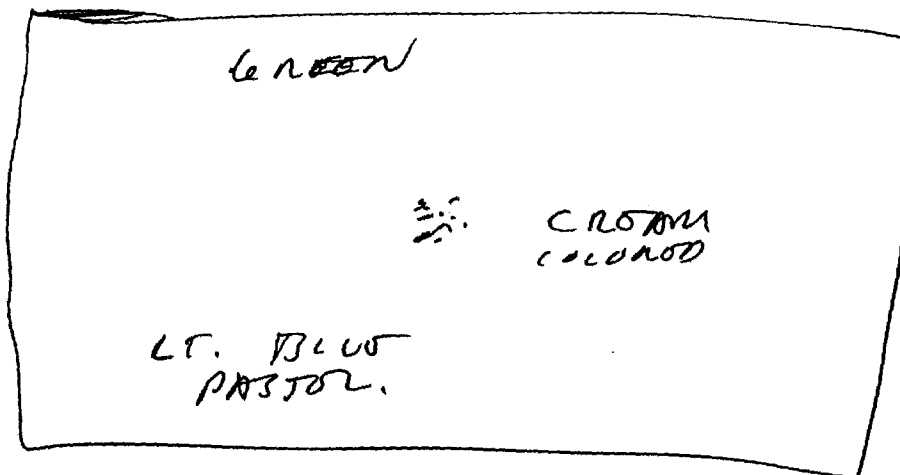 GREEN
CREAM
COLORED
LT. BLUE
PASTEL.